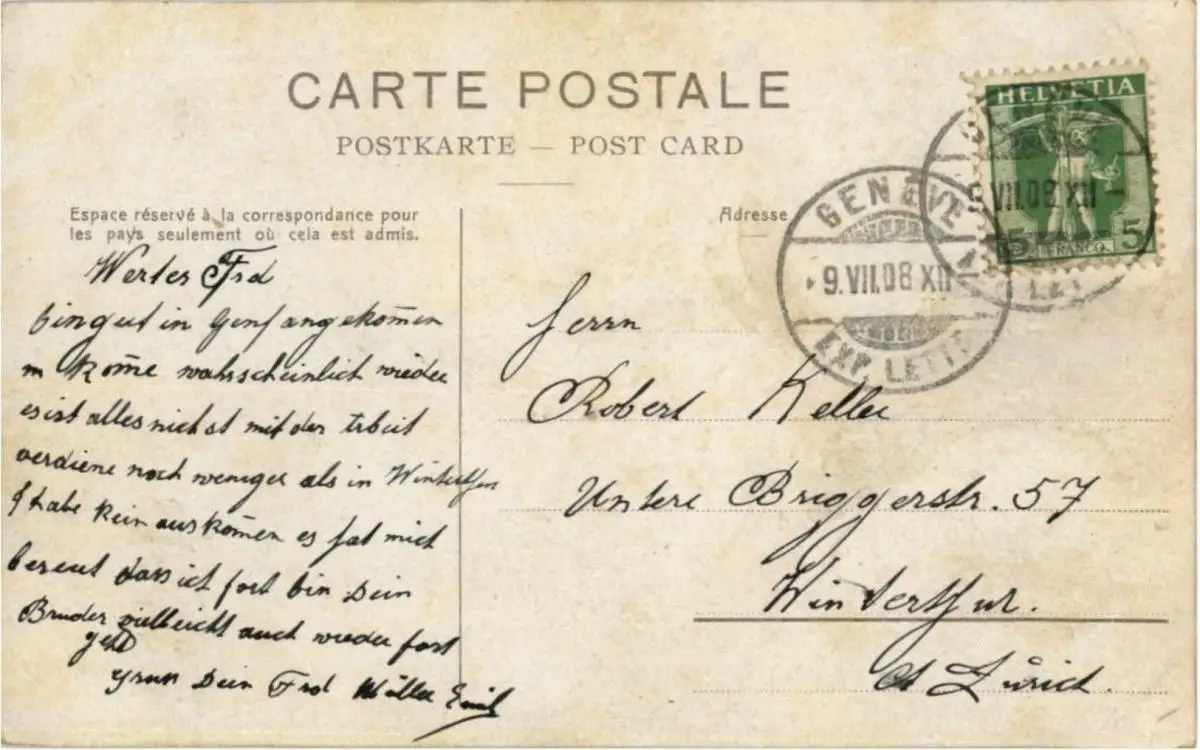 CARTE POSTALE
POSTKARTE — POST CARD
Espace réservé à la correspondance pour
les pays seulement où cela est admis.
Adresse
HELVETIA
5 FRANCO. 5
GENÈVE
9. VII. 08 XII
EXP. LETT
VII. 08 XII -
Werter Frd
bin gut in Genf angekom̄en
kom̄e wahrscheinlich wieder
es ist alles nichst mit der Arbeit
verdiene noch weniger als in Winterthur
habe kein auskom̄en es hat mich
bereut dass ich fort bin Dein
Bruder vielleicht auch wieder fort
geht
Gruss Dein Frd Müller Emil
Herrn
Robert Keller
Untere Briggerstr. 57
Winterthur.
Ct Zürich.